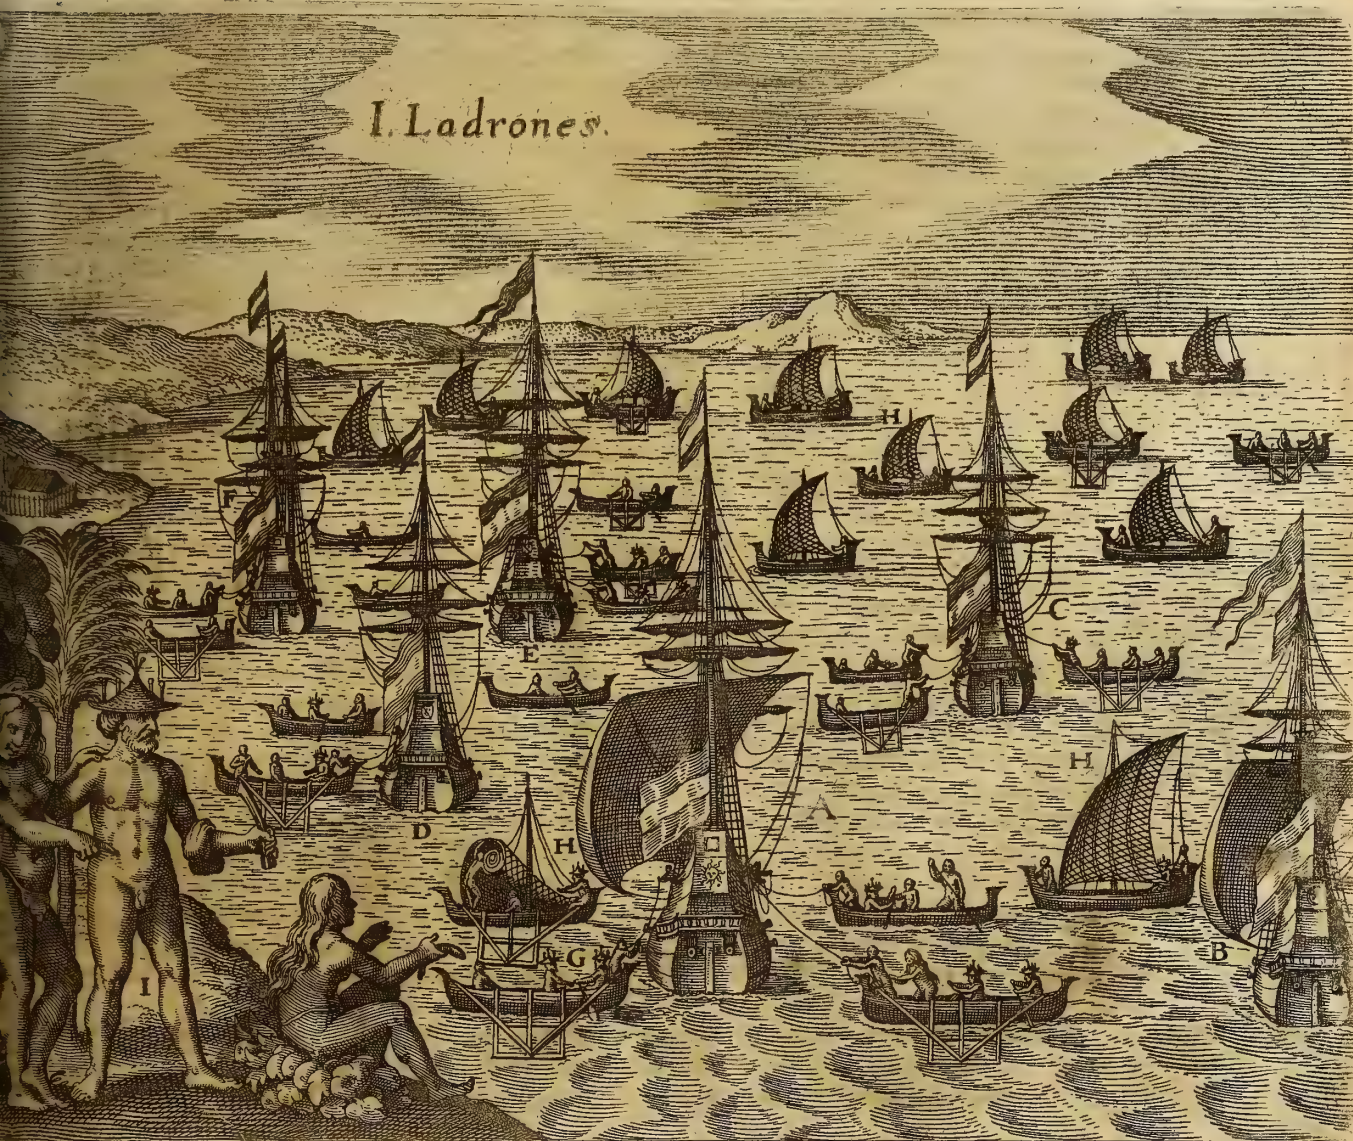 I. Ladrones.
H
F
C
E
H
A
D
H
B
G
I